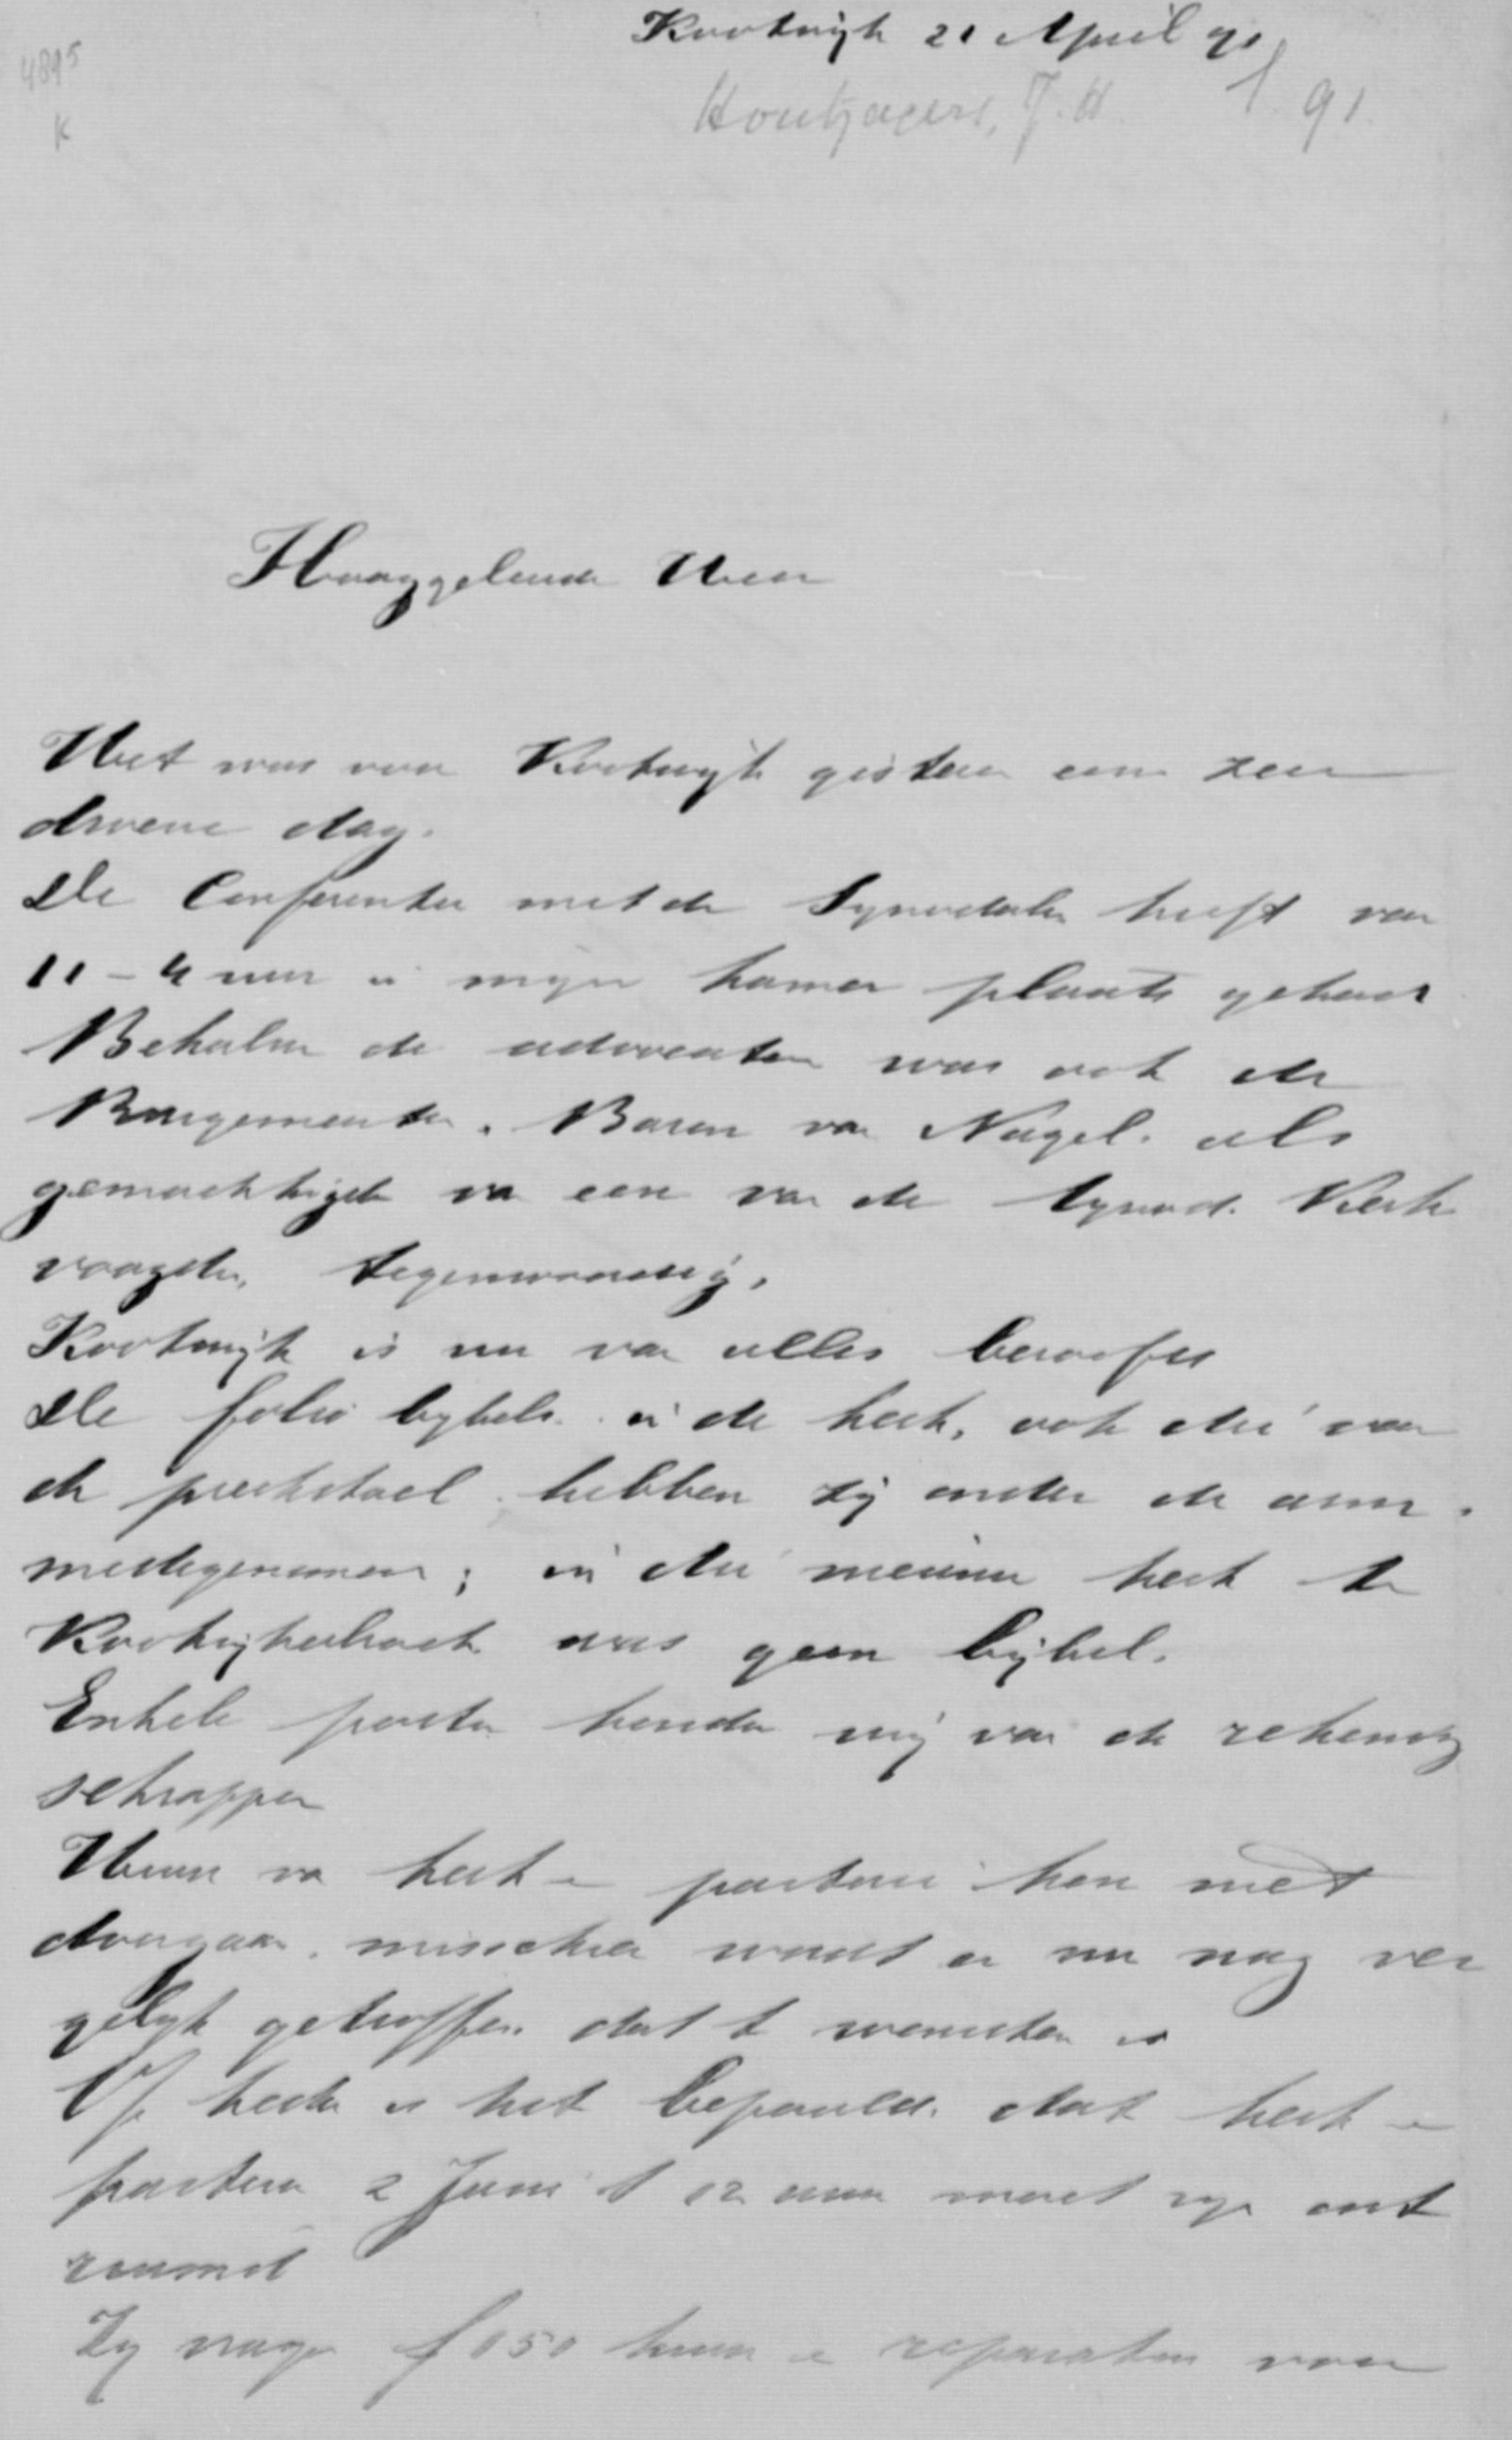 Kootwijk 21 April 91
4895
K
Houtzagers, J. H. 91.
Hooggeleerde Heer
Het was voor Kootwijk gisteren een zeer
droeve dag.
De Conferentie met de Synodalen heeft van
11 - 4 uur in mijn kamer plaats gehad
Behalve de advocaten was ook de
Burgemeester. Baron van Nagel. als
gemachtigde van een van de Synod. Kerk
voogden, tegenwoordig.
Kootwijk is nu van alles beroofd
De folio bybels in de kerk, ook die van
de preekstoel hebben zij onder de arm
medegenomen; in die nieuwe kerk te
Kootwijkerbroek was geen bijbel.
Enkele posten konden wij van de rekening
schrappen
Huur van kerk en pastorie kon niet
doorgaan. misschien wordt er nu nog ver
gelijk getroffen dat te wenschen is
Op heden is het bepaald. dat kerk en
pastorie 2 Juni 12 uur moet zijn ont
ruimd
Zij vragen f 150 huur en reparatien voor